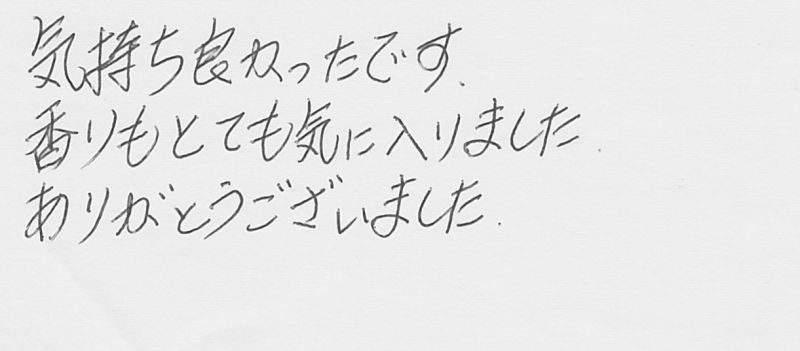 気持ち良かったです.
香りもとても気に入りました.
ありがとうございました.